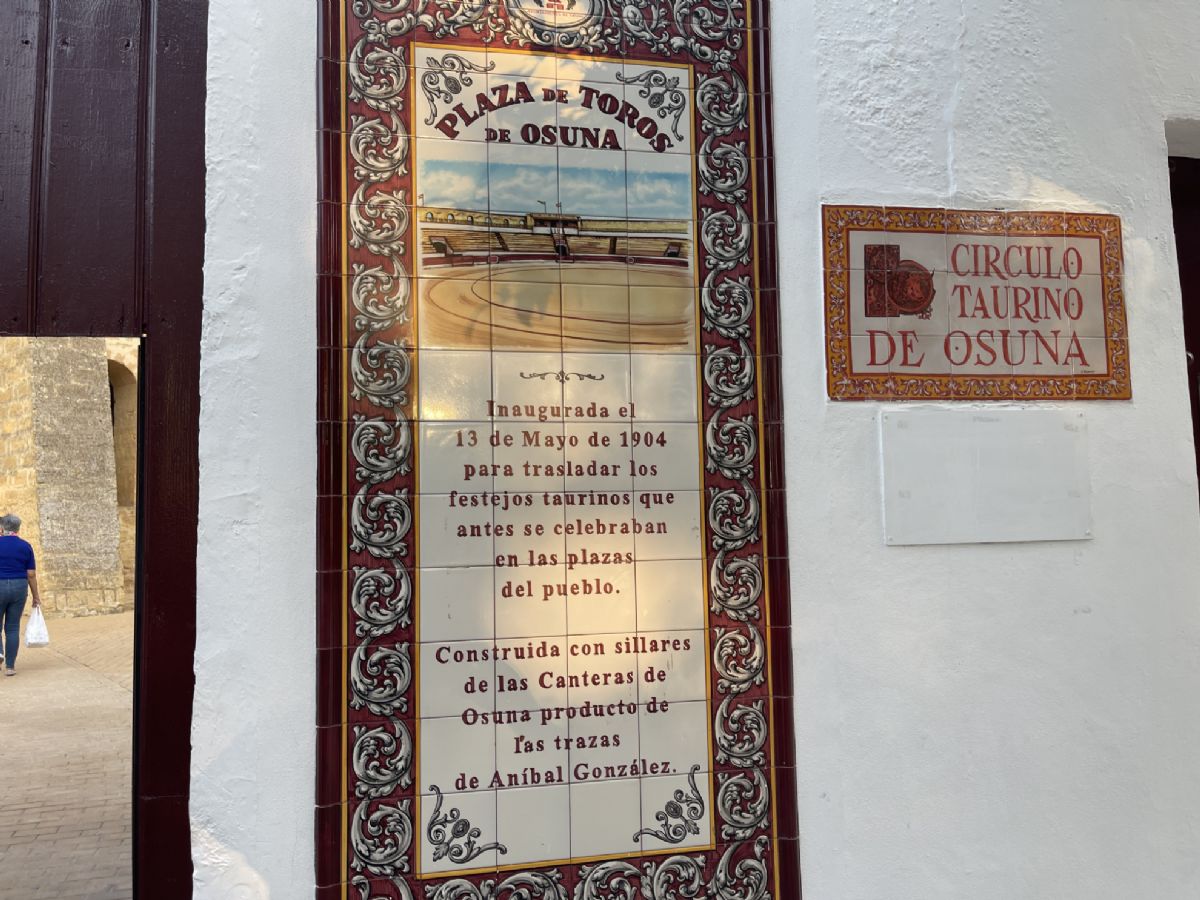 PLAZA DE TOROS
DE OSUNA
Inaugurada el
13 de Mayo de 1904
para trasladar los
festejos taurinos que
antes se celebraban
en las plazas
del pueblo.
Construida con sillares
de las Canteras de
Osuna producto de
las trazas
de Aníbal González.
CIRCULO
TAURINO
DE OSUNA